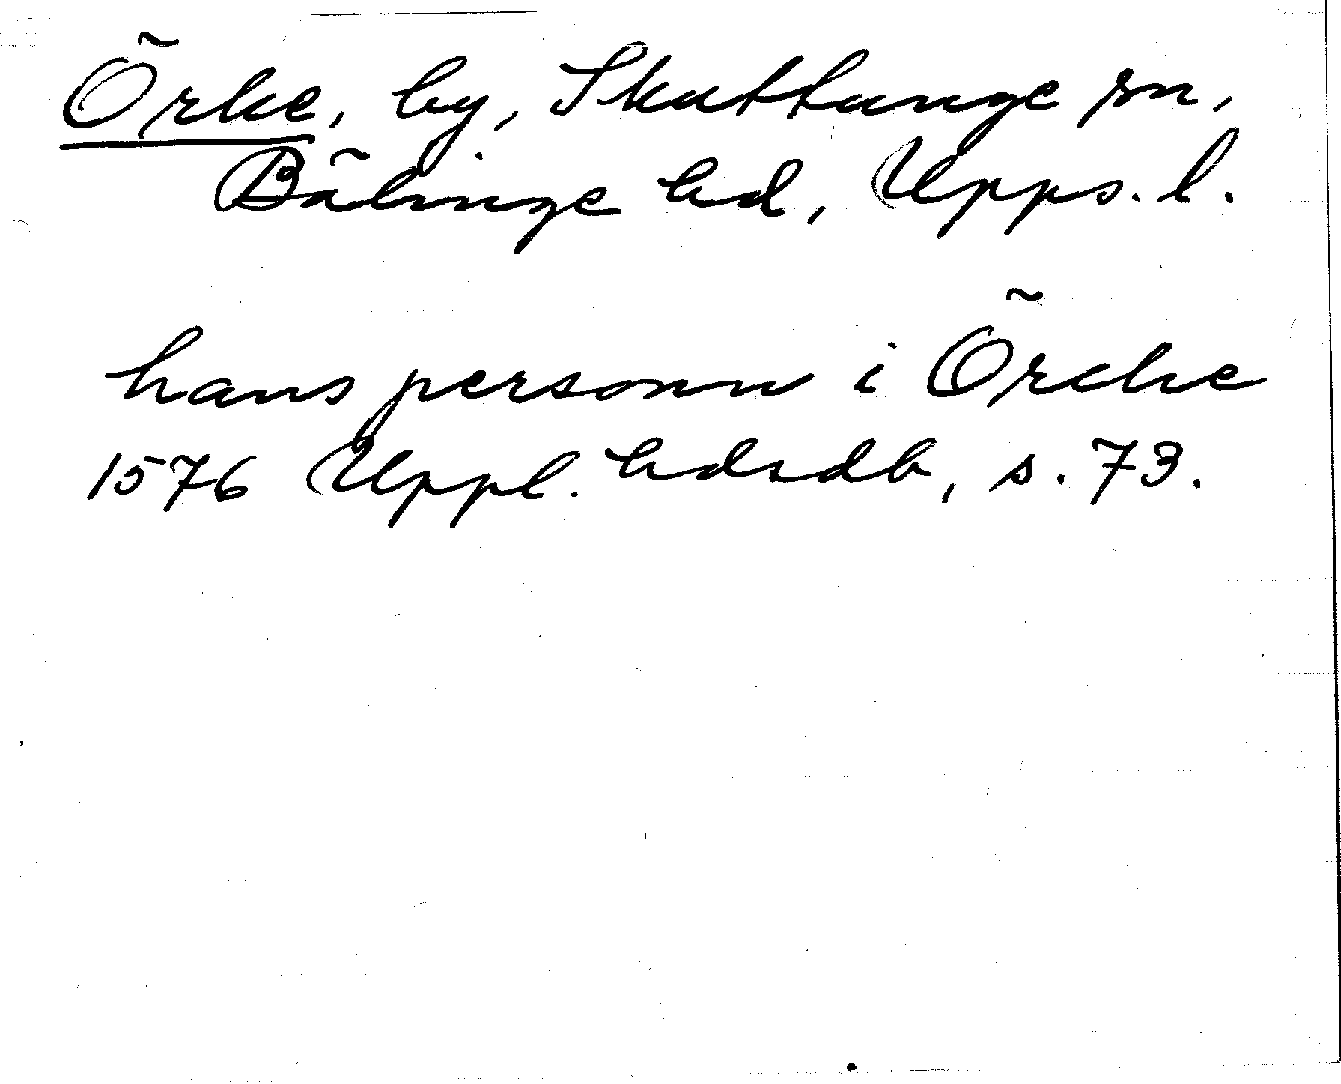 Örke, by, Skuttunge sn,
Bälinge hd, Upps. l.
hans personn i Örcke
1576 Uppl. hdrdb, s. 73.